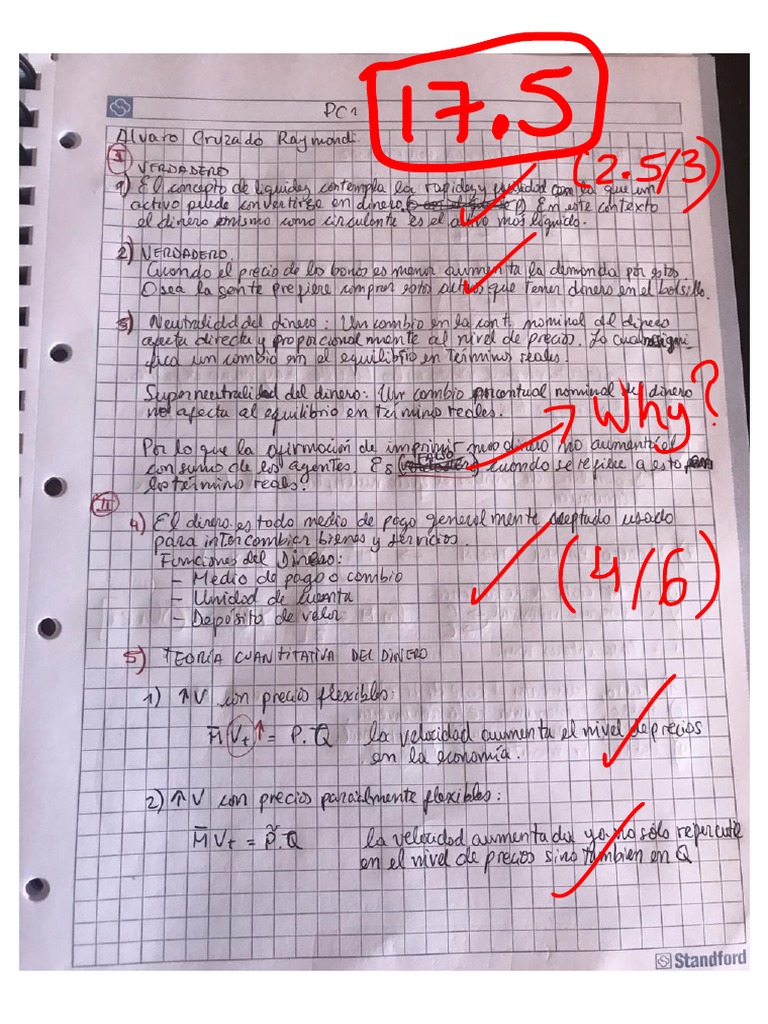 PC1
17.5
Alvaro Cruzado Raymondi
I
VERDADERO
(2.5/3)
1) El concepto de liquidez contempla la rapidez y facilidad con la que un
activo puede convertirse en dinero. En este contexto
el dinero mismo como circulante es el activo más líquido.
2) VERDADERO.
Cuando el precio de los bonos es menor aumenta la demanda por estos.
Osea la gente prefiere comprar estos activos que tener dinero en el bolsillo.
3) Neutralidad del dinero: Un cambio en la cant. nominal del dinero
afecta directa y proporcionalmente al nivel de precios. Lo cual
fica un cambio en el equilibrio en términos reales.
Superneutralidad del dinero: Un cambio porcentual nominal de dinero
no afecta al equilibrio en termino reales.
Why?
Por lo que la afirmación de imprimir mas dinero no aumenta el
consumo de los agentes. Es FALSO cuando se refiere a esto
los término reales.
II
4) El dinero es todo medio de pago generalmente aceptado usado
para intercambiar bienes y servicios.
(4/6)
Funciones del Dinero:
– Medio de pago o cambio
– Unidad de cuenta
– Depósito de valor
5) TEORÍA CUANTITATIVA DEL DINERO
1) ↑V con precios flexibles:
M̄ Vt ↑ = P. Q̄ la velocidad aumenta el nivel de precios
en la economía.
2) ↑V con precios parcialmente flexibles:
M̄ Vt = P̃. Q la velocidad aumentada ya no sólo repercute
en el nivel de precios sino tambien en Q
Standford